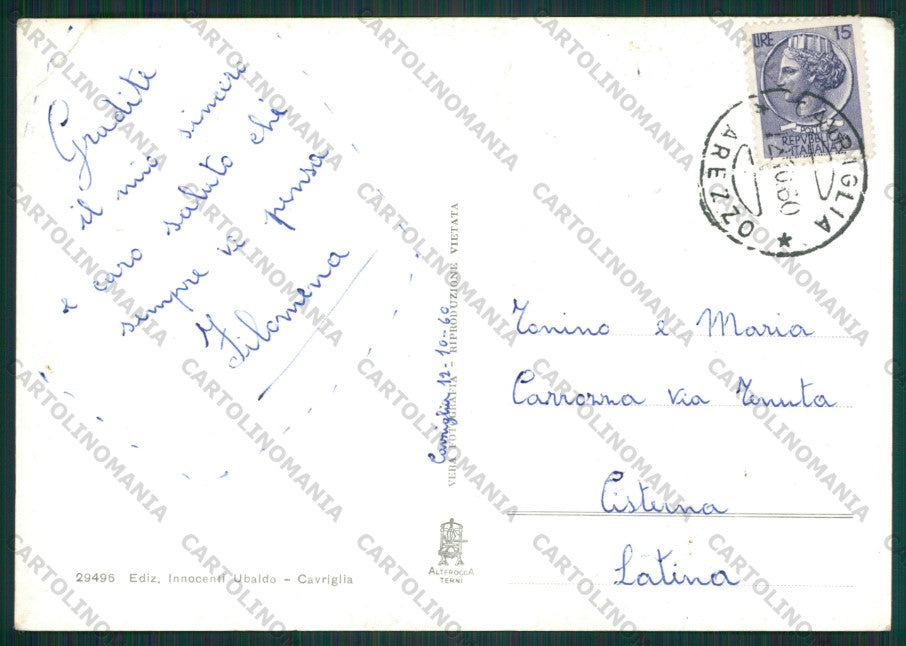 Gradite
il mio sincero
e caro saluto chi
sempre vi pensa
Filomena
Cavriglia 12-10-60
VERA FOTOGRAFIA - RIPRODUZIONE VIETATA
LIRE 15
REPVBBLICA
ITALIANA
CAVRIGLIA
* AREZZO *
10.60
Tonino e Maria
Carrozza via Tenuta
Cisterna
Latina
29496 Ediz. Innocenti Ubaldo - Cavriglia
ALTEROCCA
TERNI
CARTOLINOMANIA